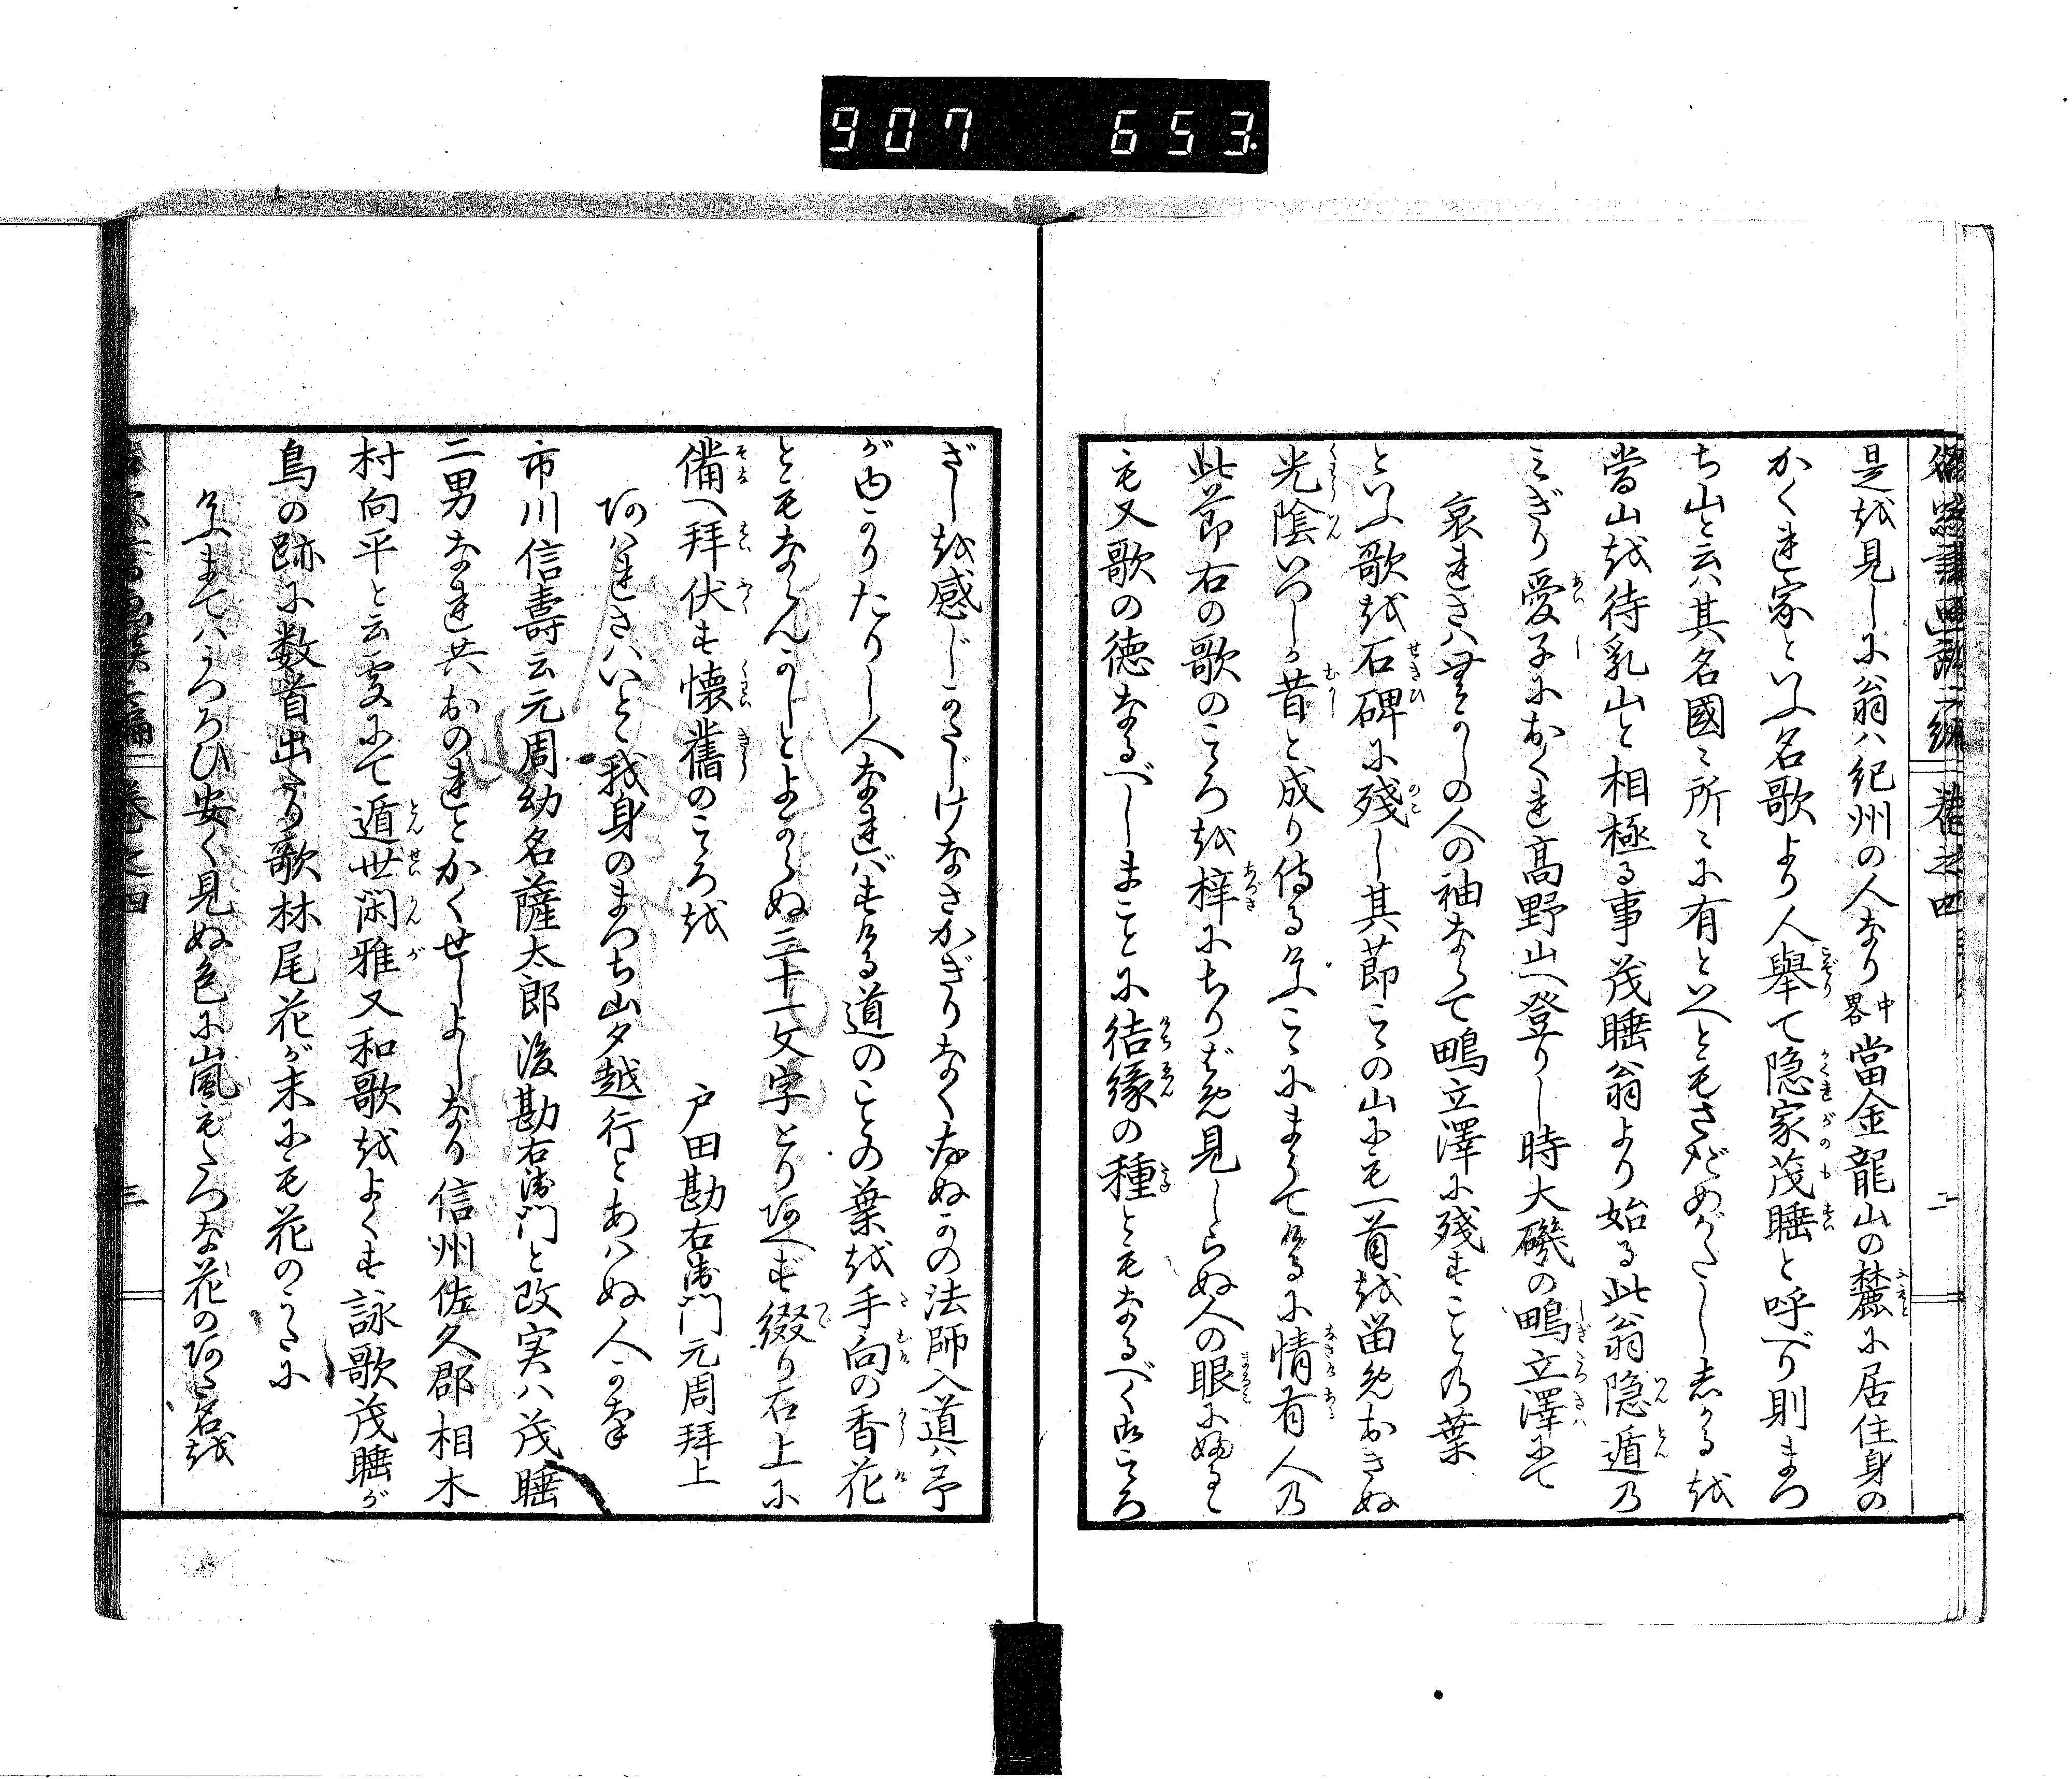 907 653
是越見しに翁ハ紀州の人なり中畧當金龍山の麓に居住身の
かくれ家といふ名歌より人舉て隐家茂睡と呼べり則まつ
ち山と云ハ其名國ミ所ミに有といへともさだめがたし志かる越
當山越待乳山と相極る事茂睡翁より始る此翁隐遁乃
ミぎり愛子におくれ髙野山へ登りし時大磯の鴫立澤にて
哀れさハ
の人の袖なりて鴫立澤に殘すことの葉
といふ歌越石碑に殘し其莭この山にも一首越畄めおきぬ
光陰いつしか昔と成り侍るけふこゝにまうてけるに情有人乃
此莭右の歌のこゝろ越梓にちりばめ見しらぬ人の眼に
も又歌の徳なるべしまことに结縁の種ともなるべく
ざし越感じかたじけなさかぎりなく
の法師入道ハ予
が内
たりし人なればすける道のことの葉越手向の香花
ともならんかしとよからぬ三十一文字とりあへず綴り石上に
備へ拜伏す懐舊のこゝろ越
戸田勘右衛門元周拜上
あハれさハいとゝ我身のまつち山夕越行とあハぬ人かな
市川信壽云元周幼名薩太郎後勘右衛門と改実ハ茂睡
二男なれ共おのれとかくせしよしなり信州佐久郡相木
村向平と云処にて遁世閑雅又和歌越よくす詠歌茂睡が
鳥の跡に数首出たり歌林尾花が末にも花のうたに
けふまてハうつろひ安く見ぬ色に嵐もたつな花のあた名越
巻之四
二
三